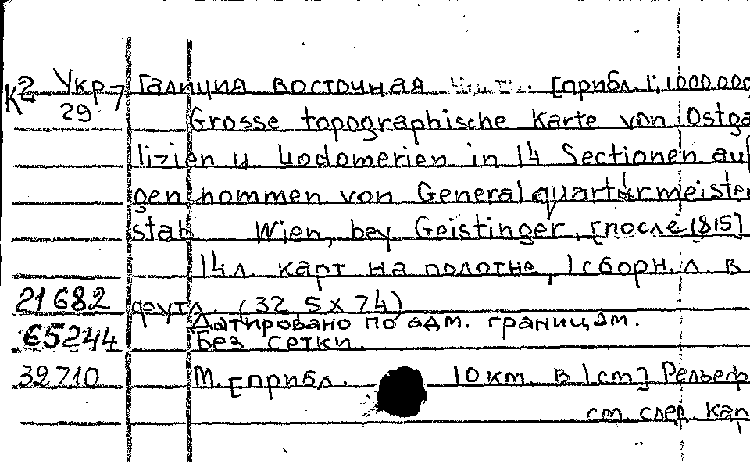 К2 Укр-7 Галиция восточная [прибл. 1:1000.000
29 Grosse topographische Karte von Ostga
lizien u. Lodomerien in 14 Sectionen auf
genhommen von Generalquartiermeister
stab Wien, bey Geistinger, [после 1815]
14 л. карт на полотне, 1 сборн. л. в
21682 футл. (32,5 x 74)
Датировано по адм. границам.
65244 Без сетки.
39710 М. [прибл. 10 км. в 1 см] Рельеф
см. след. кар